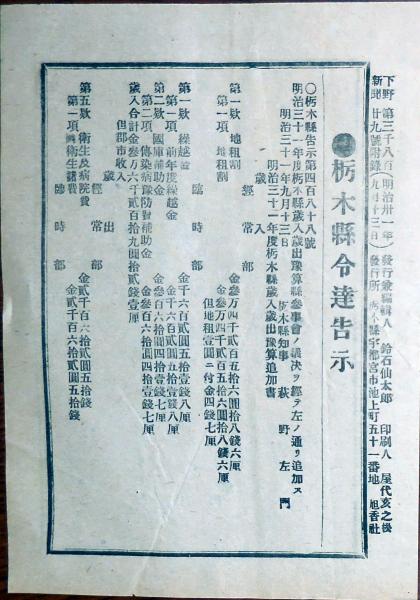 下野新聞 第三千八百廿九號附錄 (明治卅一年九月十三日) 發行兼編輯人 鈴石仙太郎 印刷人 屋代亥之松
發行所 栃木縣宇都宮市池上町五十一番地 旭香社
栃木縣令達告示
〇栃木縣告示第四百八十八號
明治三十一年度栃木縣歲入歲出豫算縣參事會ノ議決ヲ經テ左ノ通リ追加ス
明治三十一年九月十三日 栃木縣知事 萩野左門
明治三十一年度栃木縣歲入歲出豫算追加書
歲入
經常部
第一款 地租割 金參万四千貳百五拾六圓拾八錢六厘
第一項 地租割 金參万四千貳百五拾六圓拾八錢六厘
但地租壹圓ニ付金四錢七厘
臨時部
第一款 繰越金 金千六百貳圓五拾壹錢八厘
第一項 前年度繰越金 金千六百貳圓五拾壹錢八厘
第二款 國庫補助金 金參百六拾圓四拾壹錢七厘
第二項 傳染病豫防費補助金 金參百六拾圓四拾壹錢七厘
歲入合計金參万六千貳百拾九圓拾貳錢壹厘
但郡市收入
歲出
經常部
第五款 衛生及病院費 金貳千百六拾貳圓五拾錢
第一項 衛生諸費 金貳千百六拾貳圓五拾錢
臨時部